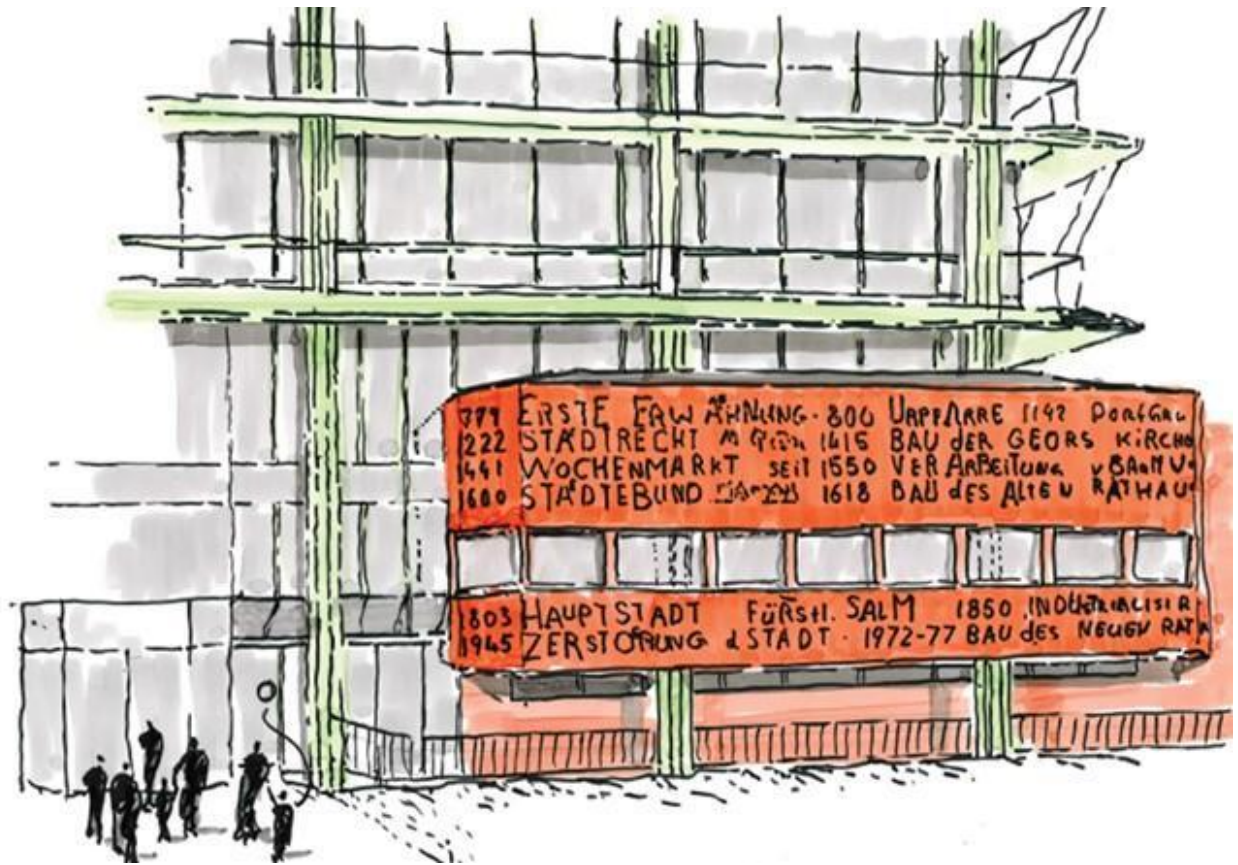 779 ERSTE ERWÄHNUNG · 800 URPFARRE 1142 DORFGRU
1222 STADTRECHT 1415 BAU dER GEORS KiRCHE
1441 WOCHENMARKT SEIT 1550 VERARBEITUNG v BAUMW
1600 STÄDTEBUND 1618 BAU dES ALTEN RATHAU
1803 HAUPTSTADT FÜRStl. SALM 1850 INDUSTRIALISIER
1945 ZERSTÖRUNG d STADT · 1972-77 BAU dES NEUEN RATH